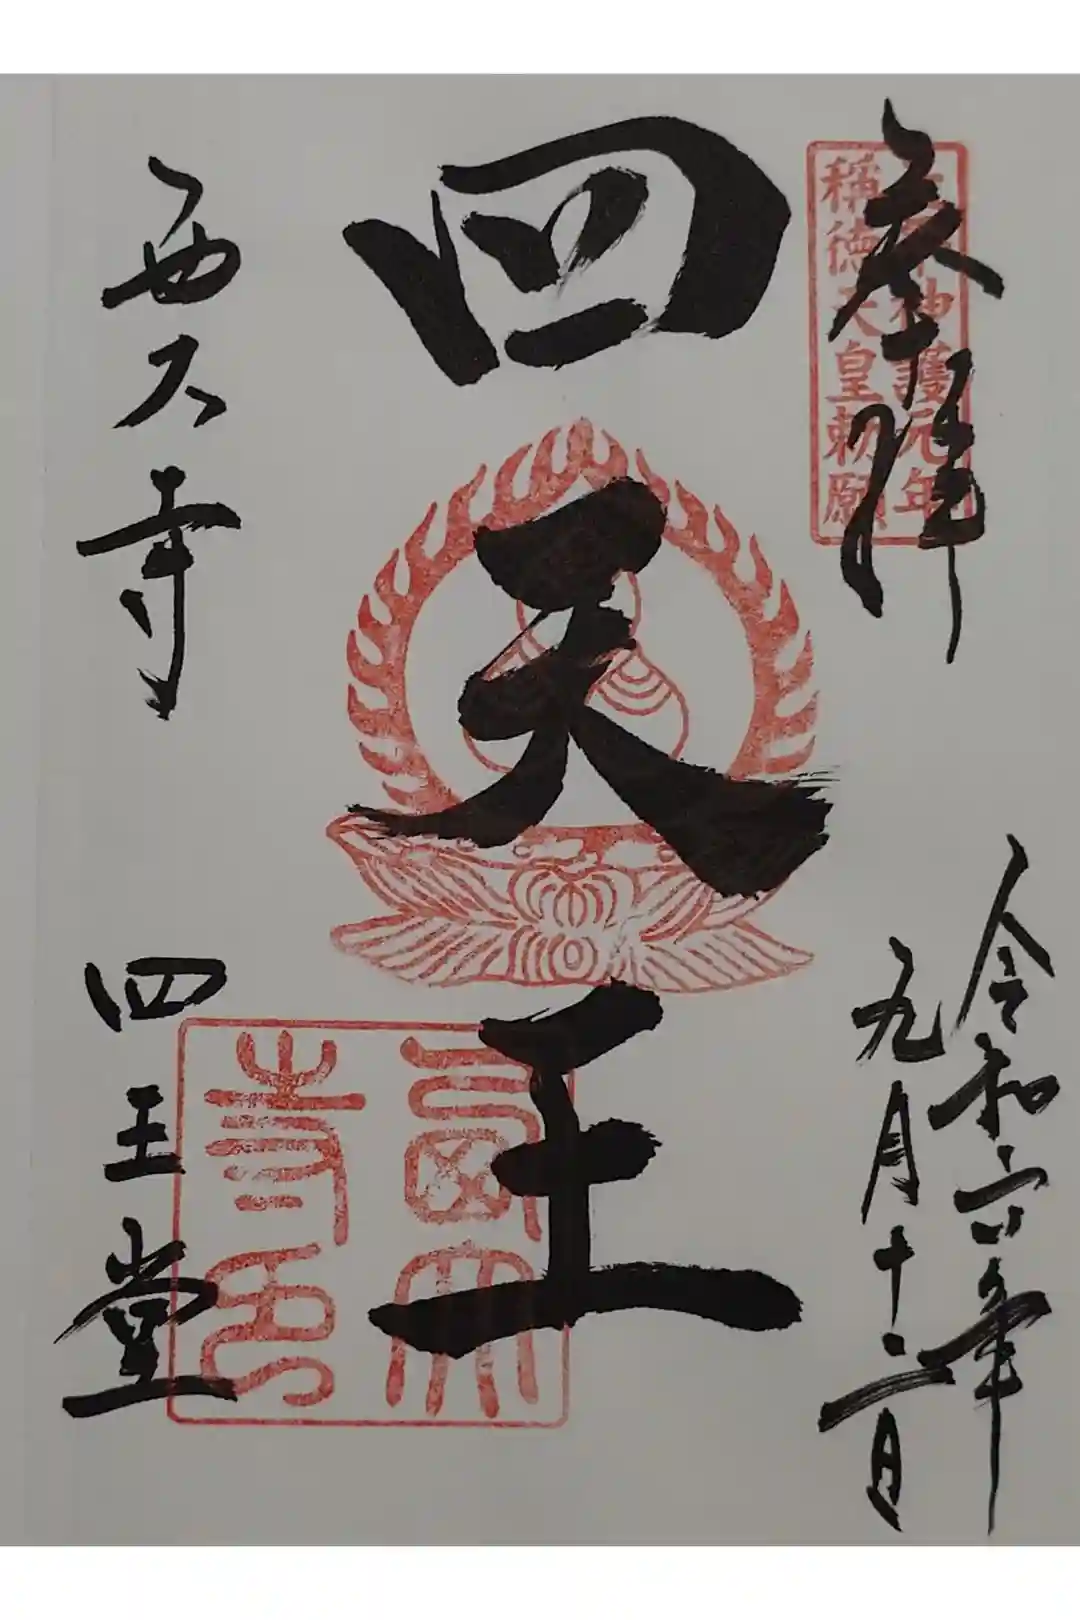 参拝
天平神護元年
稱德天皇勅願
令和六年
九月十二日
四天王
西大寺
四王堂
西大寺印